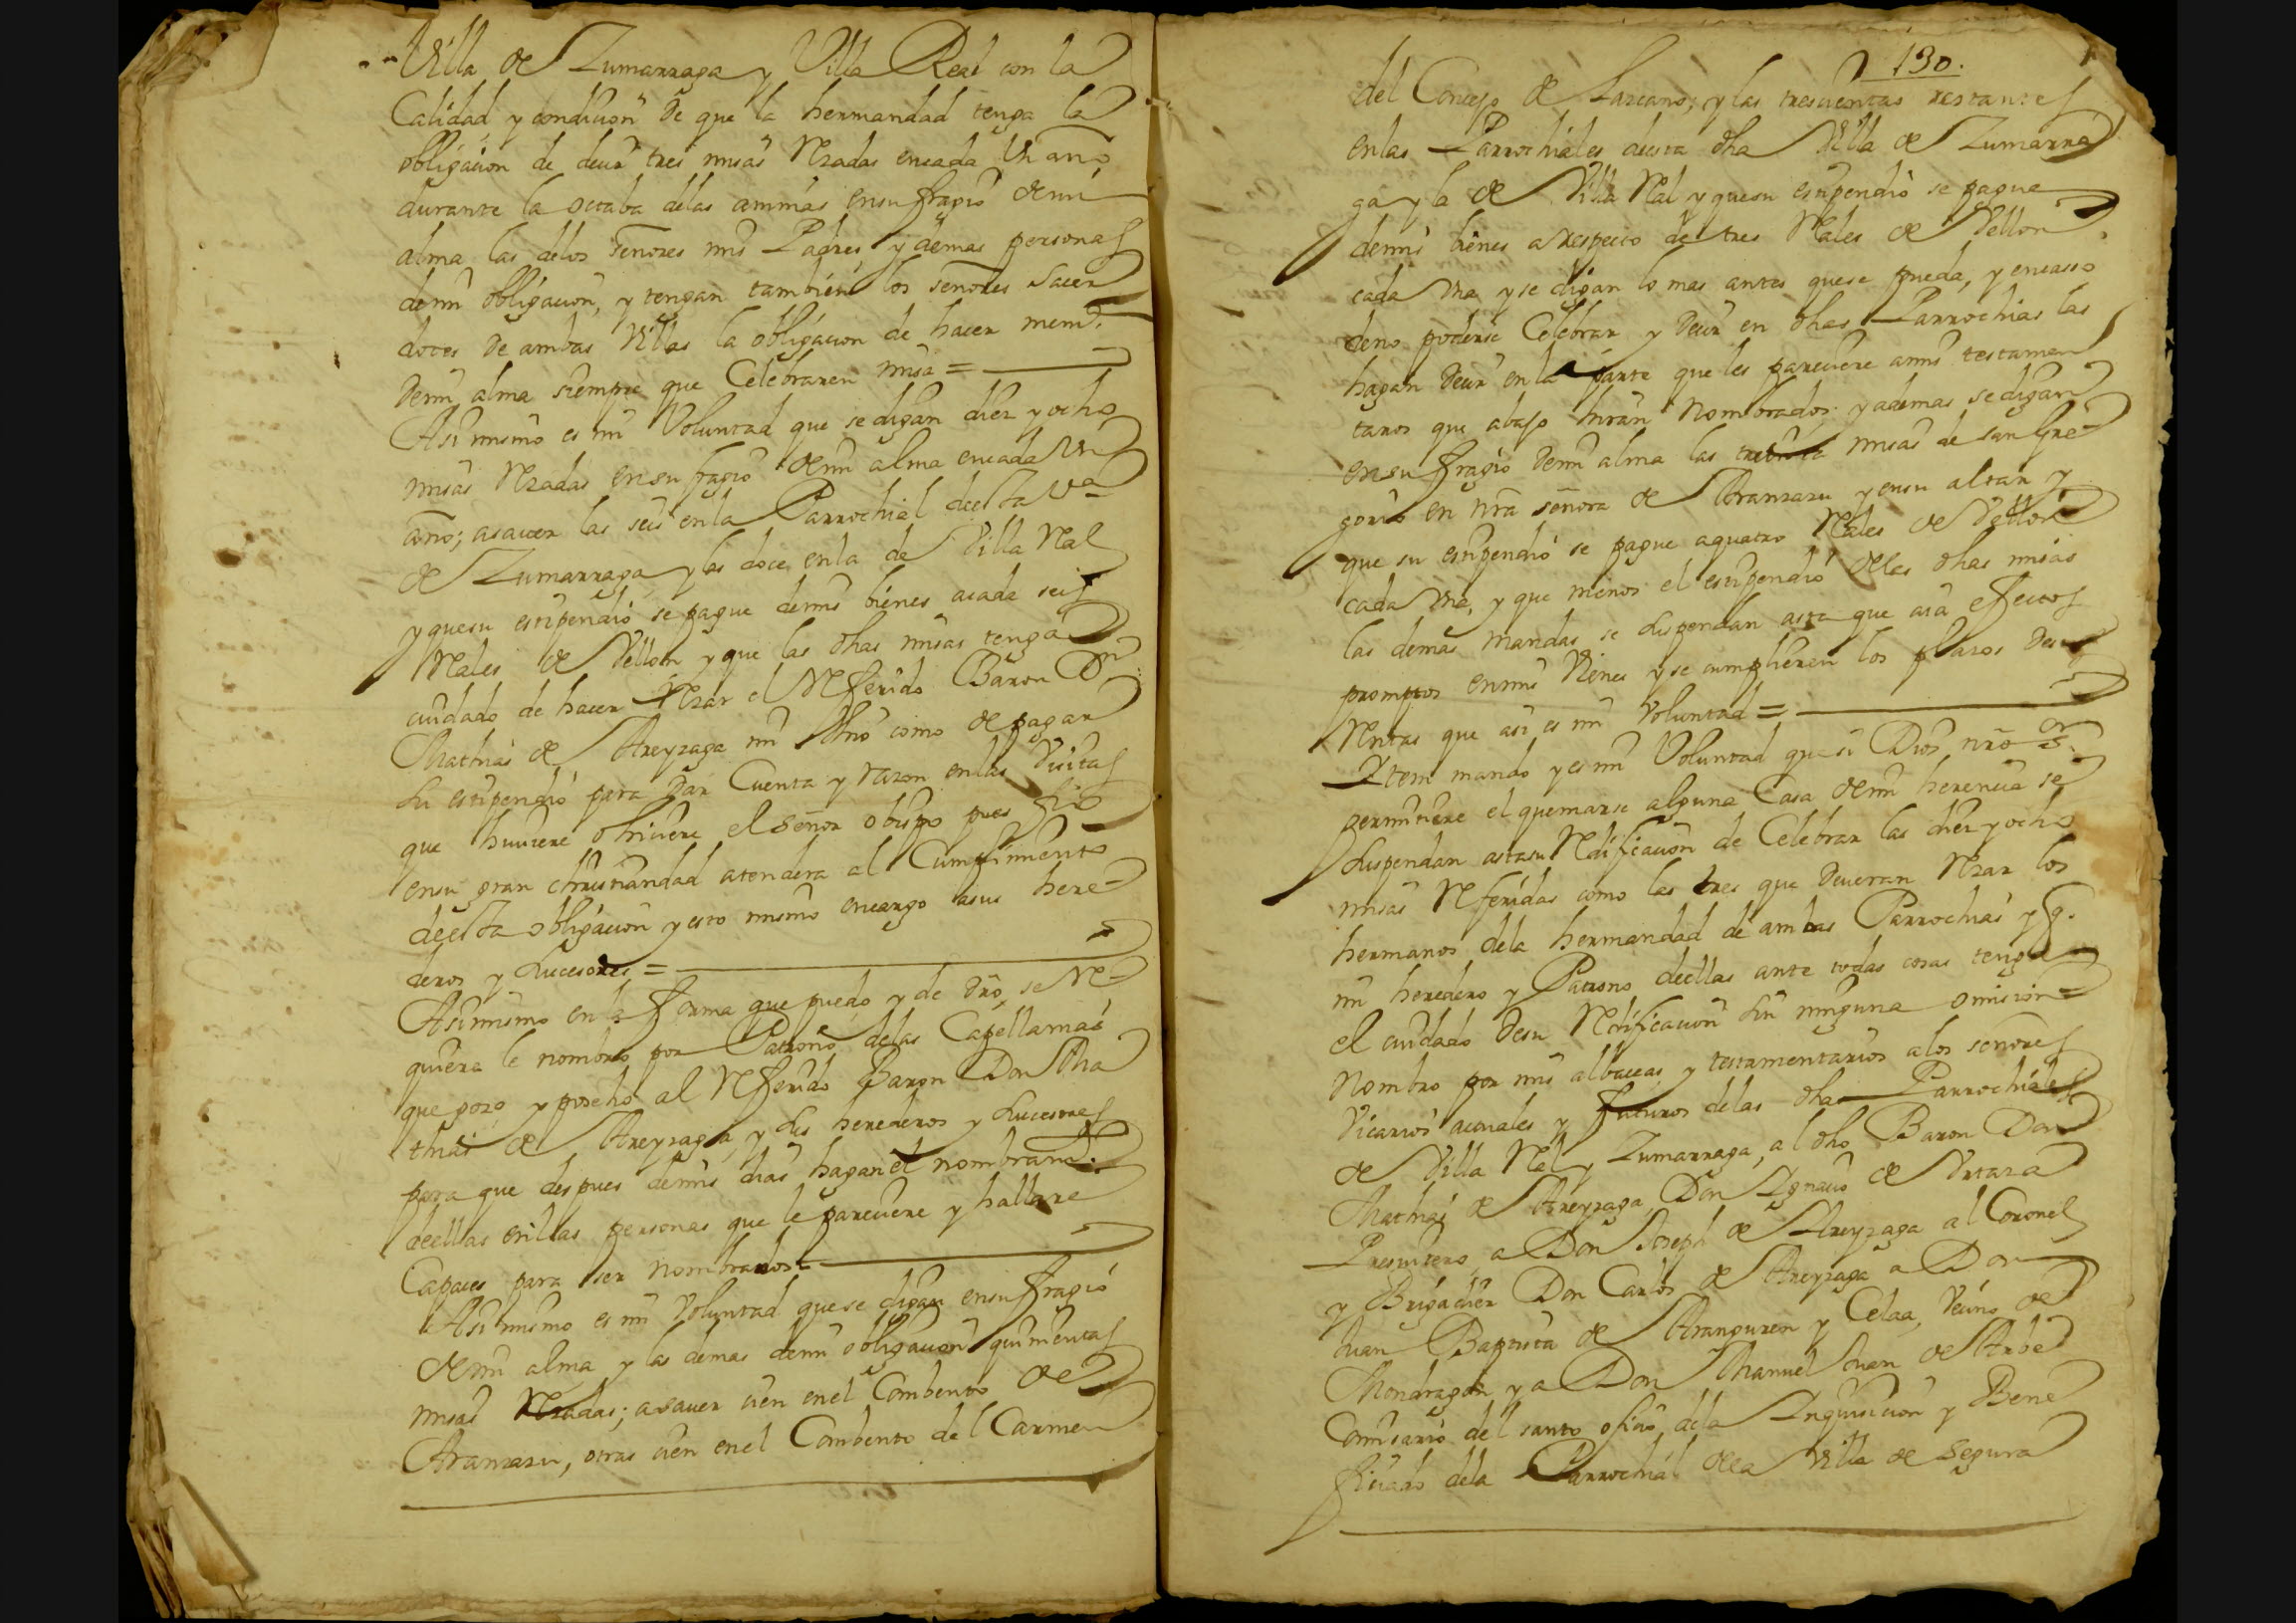 Villa de Zumarraga y Villa Real con la
Calidad y condicion de que la hermandad tenga la
obligacion de decir tres misas Rzadas encada Un año
durante la octaba delas animas ensufragio demi
alma las delos señores mis Padres, y demas personas
demi obligacion, y tengan tambien los señores Sacer
dotes de ambas Villas la obligacion de hacer mem.ª
demi alma siempre que Celebraren misa =
Asimismo es mi Voluntad que se digan diez y ocho
misas Rzadas ensufragio demi alma encada Un
año; asaver las seis enla Parrochial deesta Vª
de Zumarraga y las doce enla de Villa Ral
y quesu estipendio se pague demis bienes acada seis
Rales de Vellon y que las dhas misas tenga
cuidado de hacer Rzar el Referido Baron Dn.
Mathias de Areyzaga mi como de pagar
su estipendio para dar Cuenta y razon enlas Visitas
que huviere ohiciere el señor obispo pues fio
ensu gran christiandad atendera al Cumplimiento
deesta obligacion y esto mismo encargo asus here-
deros y sucesores =
Asimismo enla forma que puedo y de dro se Re-
quiera le nombro por Patrono delas Capellanias
que gozo y poseho al Referido Baron Don Ma
thias de Areyzaga, y sus herederos y sucesores
para que despues demis dias hagan el nombram.to
deellas enillas personas que le pareciere y hallare
Capaces para ser nombrados =
Asimismo es mi Voluntad quese digan ensufragio
demi alma y las demas demi obligacion quinientas
misas Rzadas; asaver cien enel Combento de
Aranzazu, otras cien enel Combento del Carmen
130.
del Concejo de Lazcano; y las trescientas restantes
enlas Parrochiales deesta dha Villa de Zumarra
ga y la de Villa Ral y quesu estipendio se pague
demis bienes a respecto de tres Rales de Vellon
cada Una y se digan lo mas antes quese pueda, y encaso
deno poderse Celebrar y decir en dhas Parrochias las
hagan decir enla parte que les pareciere amis testamen
tarios que abajo hiran nombrados; y ademas sedigan
ensufragio demi alma las treinta misas de san Gre-
gorio en nra señora de Aranzazu y ensu altar y
que su estipendio se pague aquatro Rales de Vellon
cada Una, y que menos el estipendio delas dhas misas
las demas mandas se suspendan asta que aia efectos
promptos enmis Vienes y se cumplieren los plazos desus
Rentas que asi es mi Voluntad =
Item mando y es mi Voluntad quesi Dios nro Sr.
permitiere el quemarse alguna Casa demi herencia se
suspendan astasu Redificacion de Celebrar las diez y ocho
misas Referidas como las tres que deveran Rzar los
hermanos dela hermandad de ambas Parrochias y q.
mi heredero y Patrono deellas ante todas cosas tenga
el cuidado desu Redificacion sin ninguna omision =
Nombro por mis albaceas y testamentarios alos señores
Vicarios actuales y futuros delas dhas Parrochiales
de Villa Ral y Zumarraga, al dho Baron Don
Mathias de Areyzaga, Don Ignacio de Urtaza
Presvitero, a Don Joseph de Areyzaga al Coronel
y Brigadier Don Carlos de Areyzaga a Don
Juan Baptista de Aranguren y Celaa, Vecino de
Mondragon y a Don Manuel Juan de Arbe
Comisario del santo oficio dela Inquisicion y Bene
ficiado dela Parrochial dela Villa de Segura